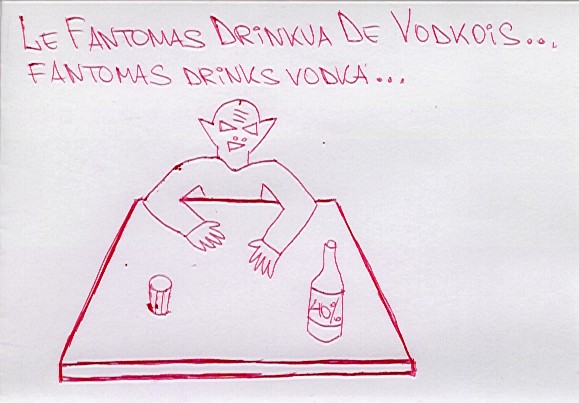 LE FANTOMAS DRINKUA DE VODKOIS...
FANTOMAS DRINKS VODKA...
40%